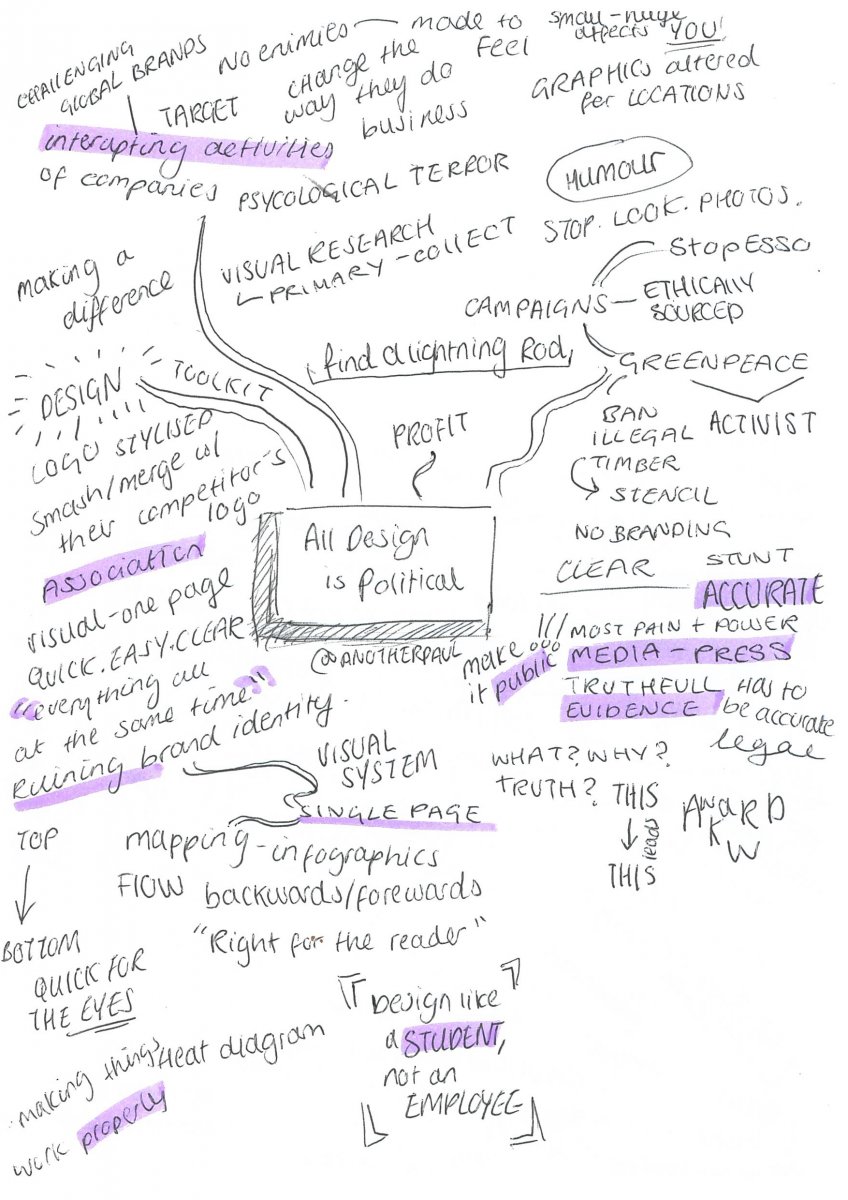 CHALLENGING
GLOBAL BRANDS
NO ENIMIES — made to
FEEL
small-huge
affects YOU!
TARGET
change the
way they do
business
GRAPHICS altered
per LOCATIONS
interupting activities
of companies
PSYCOLOGICAL TERROR
HUMOUR
STOP. LOOK. PHOTOS.
VISUAL RESEARCH
PRIMARY - COLLECT
making a
difference
CAMPAIGNS
Stop ESSO
ETHICALLY
SOURCED
find a lightning Rod,
GREENPEACE
ACTIVIST
DESIGN
TOOLKIT
PROFIT
BAN
ILLEGAL
TIMBER
STENCIL
LOGO STYLISED
Smash/merge w/
their competitor's
logo
ASSOCIATION
All Design
is Political
@ANOTHERPAUL
NO BRANDING
CLEAR
STUNT
ACCURATE
visual-one page
QUICK.EASY.CLEAR
"everything all
at the same time"
Ruining brand identity.
make
it public
MOST PAIN + POWER
MEDIA - PRESS
TRUTHFULL
EVIDENCE
has to
be accurate
legal
VISUAL
SYSTEM
SINGLE PAGE
WHAT? WHY?
TRUTH?
THIS
reads
THIS
AWKWARD
TOP
BOTTOM
mapping-infographics
FLOW backwards/forewards
"Right for the reader"
QUICK FOR
THE EYES
Heat diagram
making things
work properly
Design like
a STUDENT,
not an
EMPLOYEE